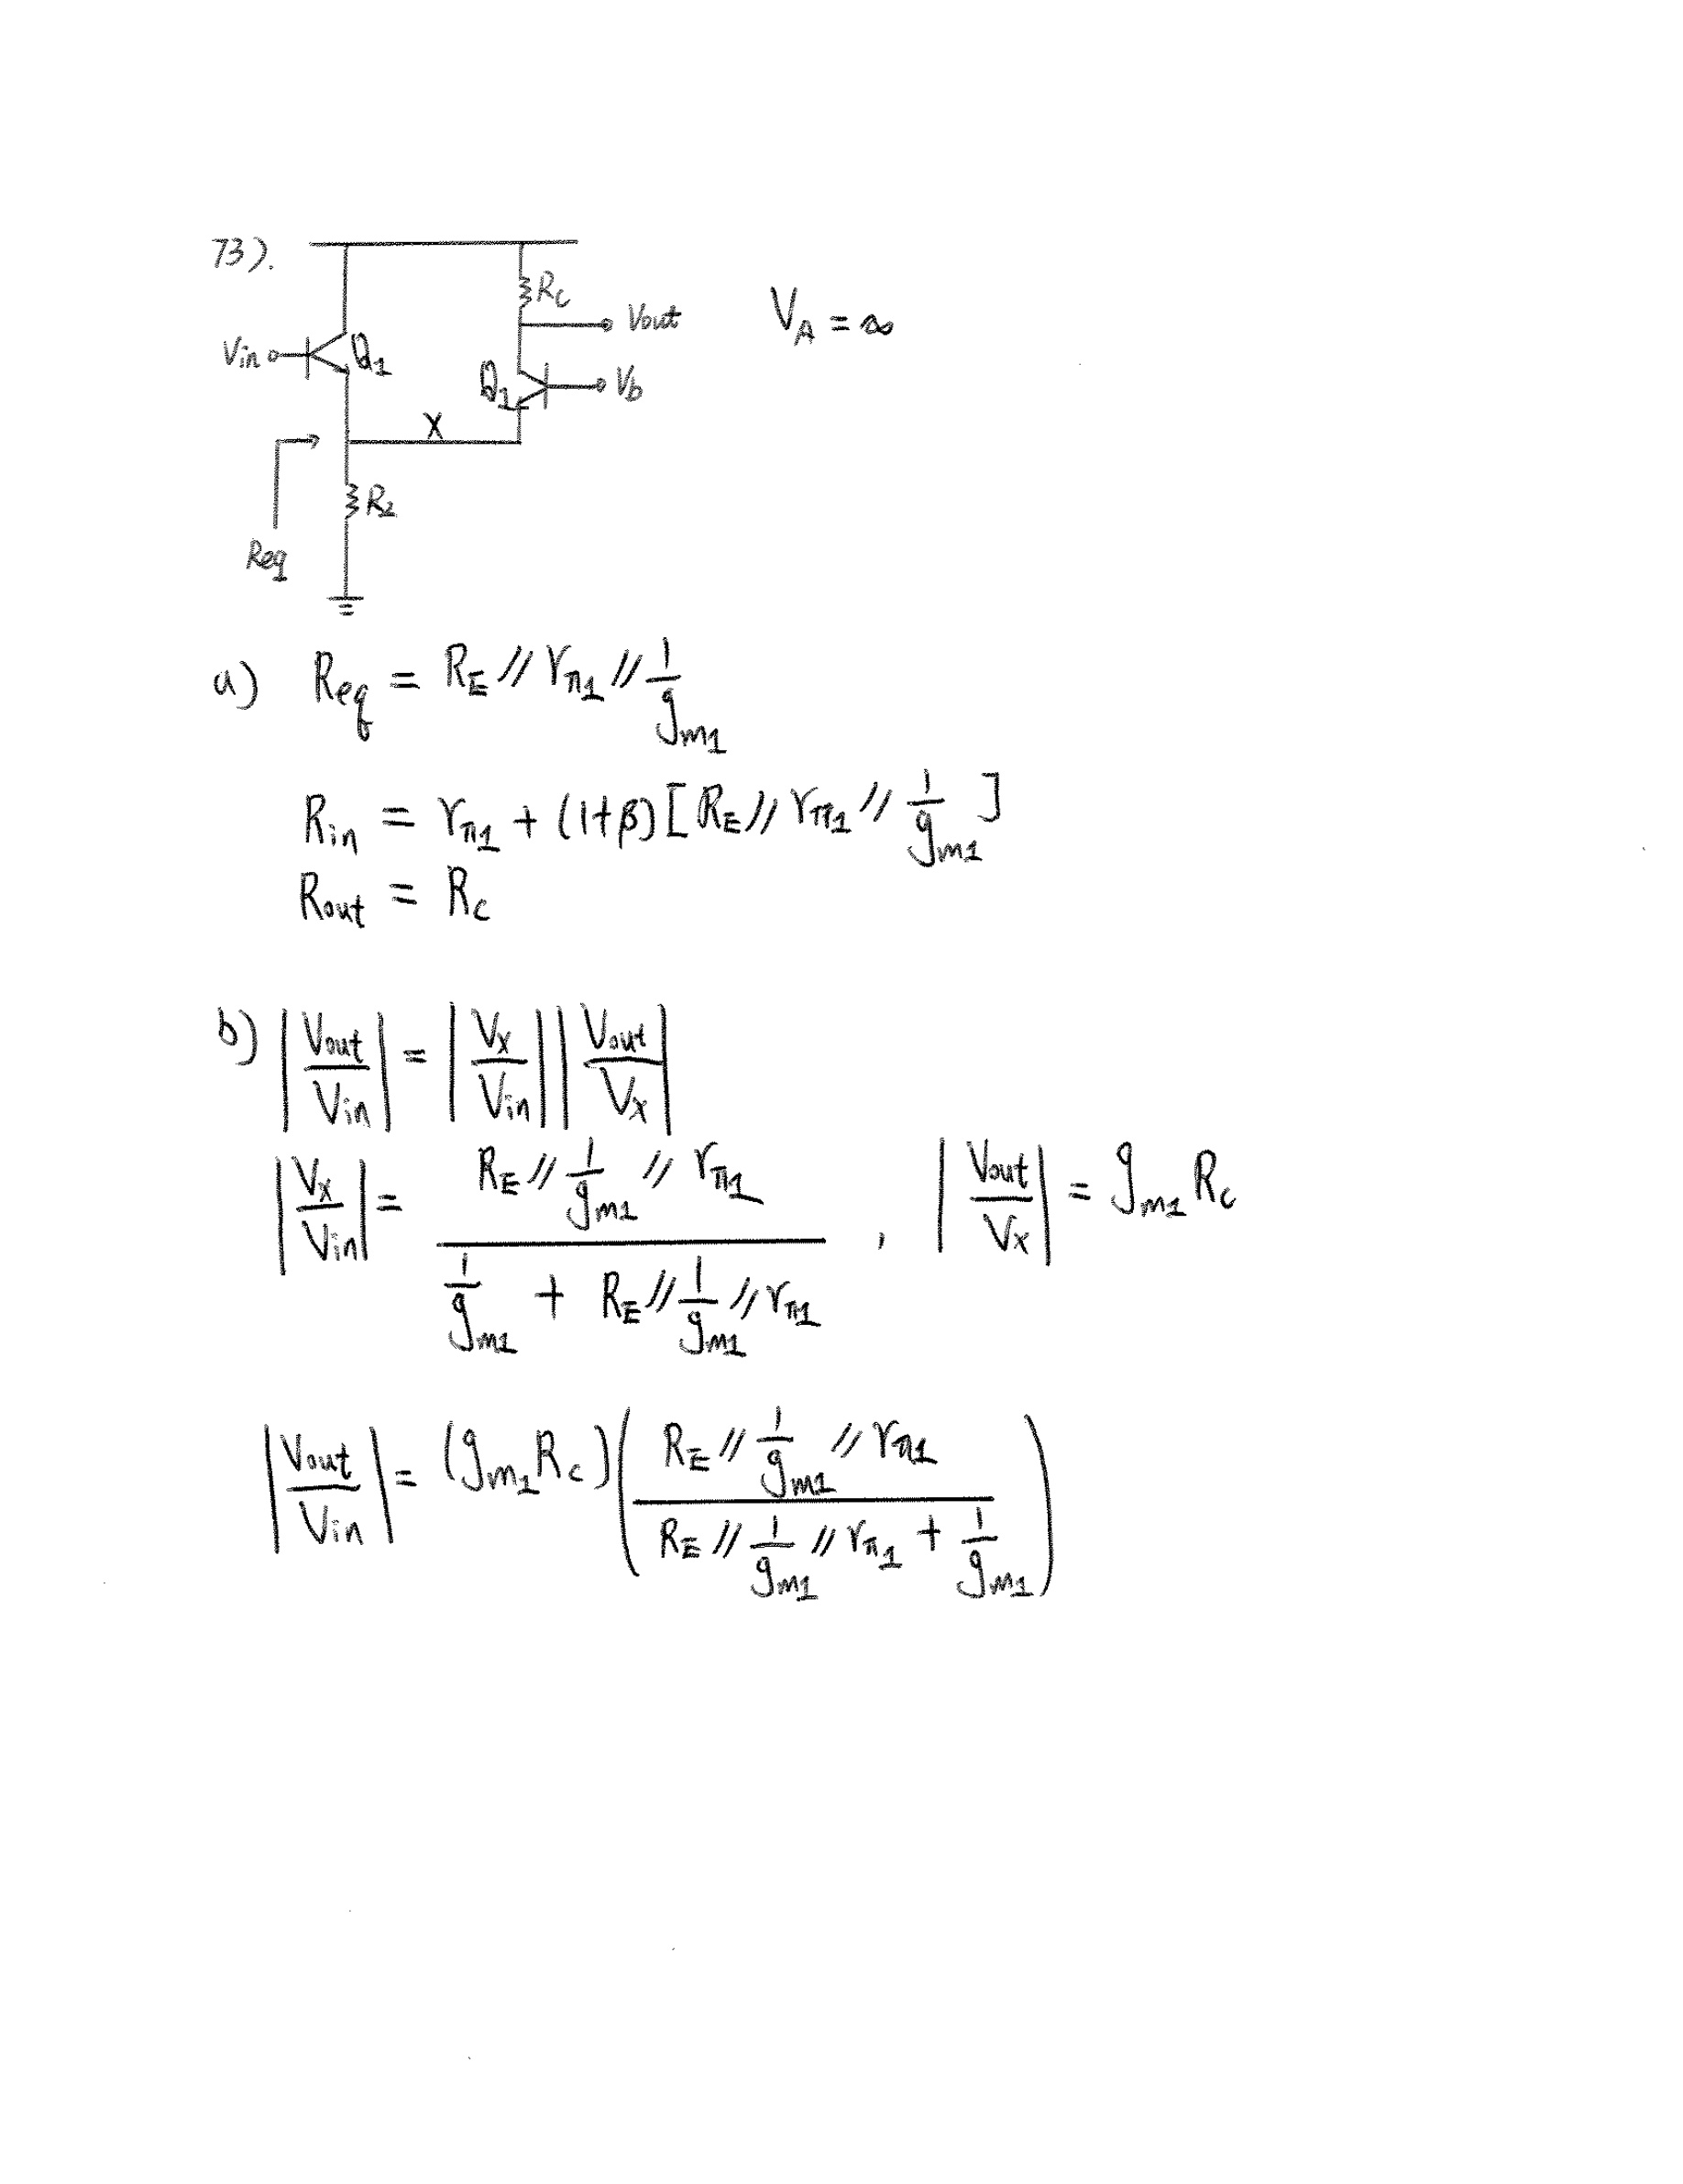 73).
R_C
Vout
V_A = ∞
Vin
Q_1
Q_1
Vb
X
R_2
Req
a) R_eq = R_E // r_π1 // 1/g_m1
R_in = r_π1 + (1+β) [ R_E // r_π1 // 1/g_m1 ]
R_out = R_C
b) |Vout/Vin| = |Vx/Vin| |Vout/Vx|
|Vx/Vin| = (R_E // 1/g_m1 // r_π1) / (1/g_m1 + R_E // 1/g_m1 // r_π1) , |Vout/Vx| = g_m1 R_C
|Vout/Vin| = (g_m1 R_C) ( (R_E // 1/g_m1 // r_π1) / (R_E // 1/g_m1 // r_π1 + 1/g_m1) )